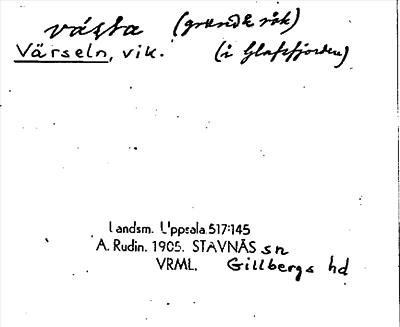 vásta (
Värseln, vik. (i Glafsfjorden)
Landsm. Uppsala 517:145
A. Rudin. 1905. STAVNÄS sn
VRML. Gillbergs hd